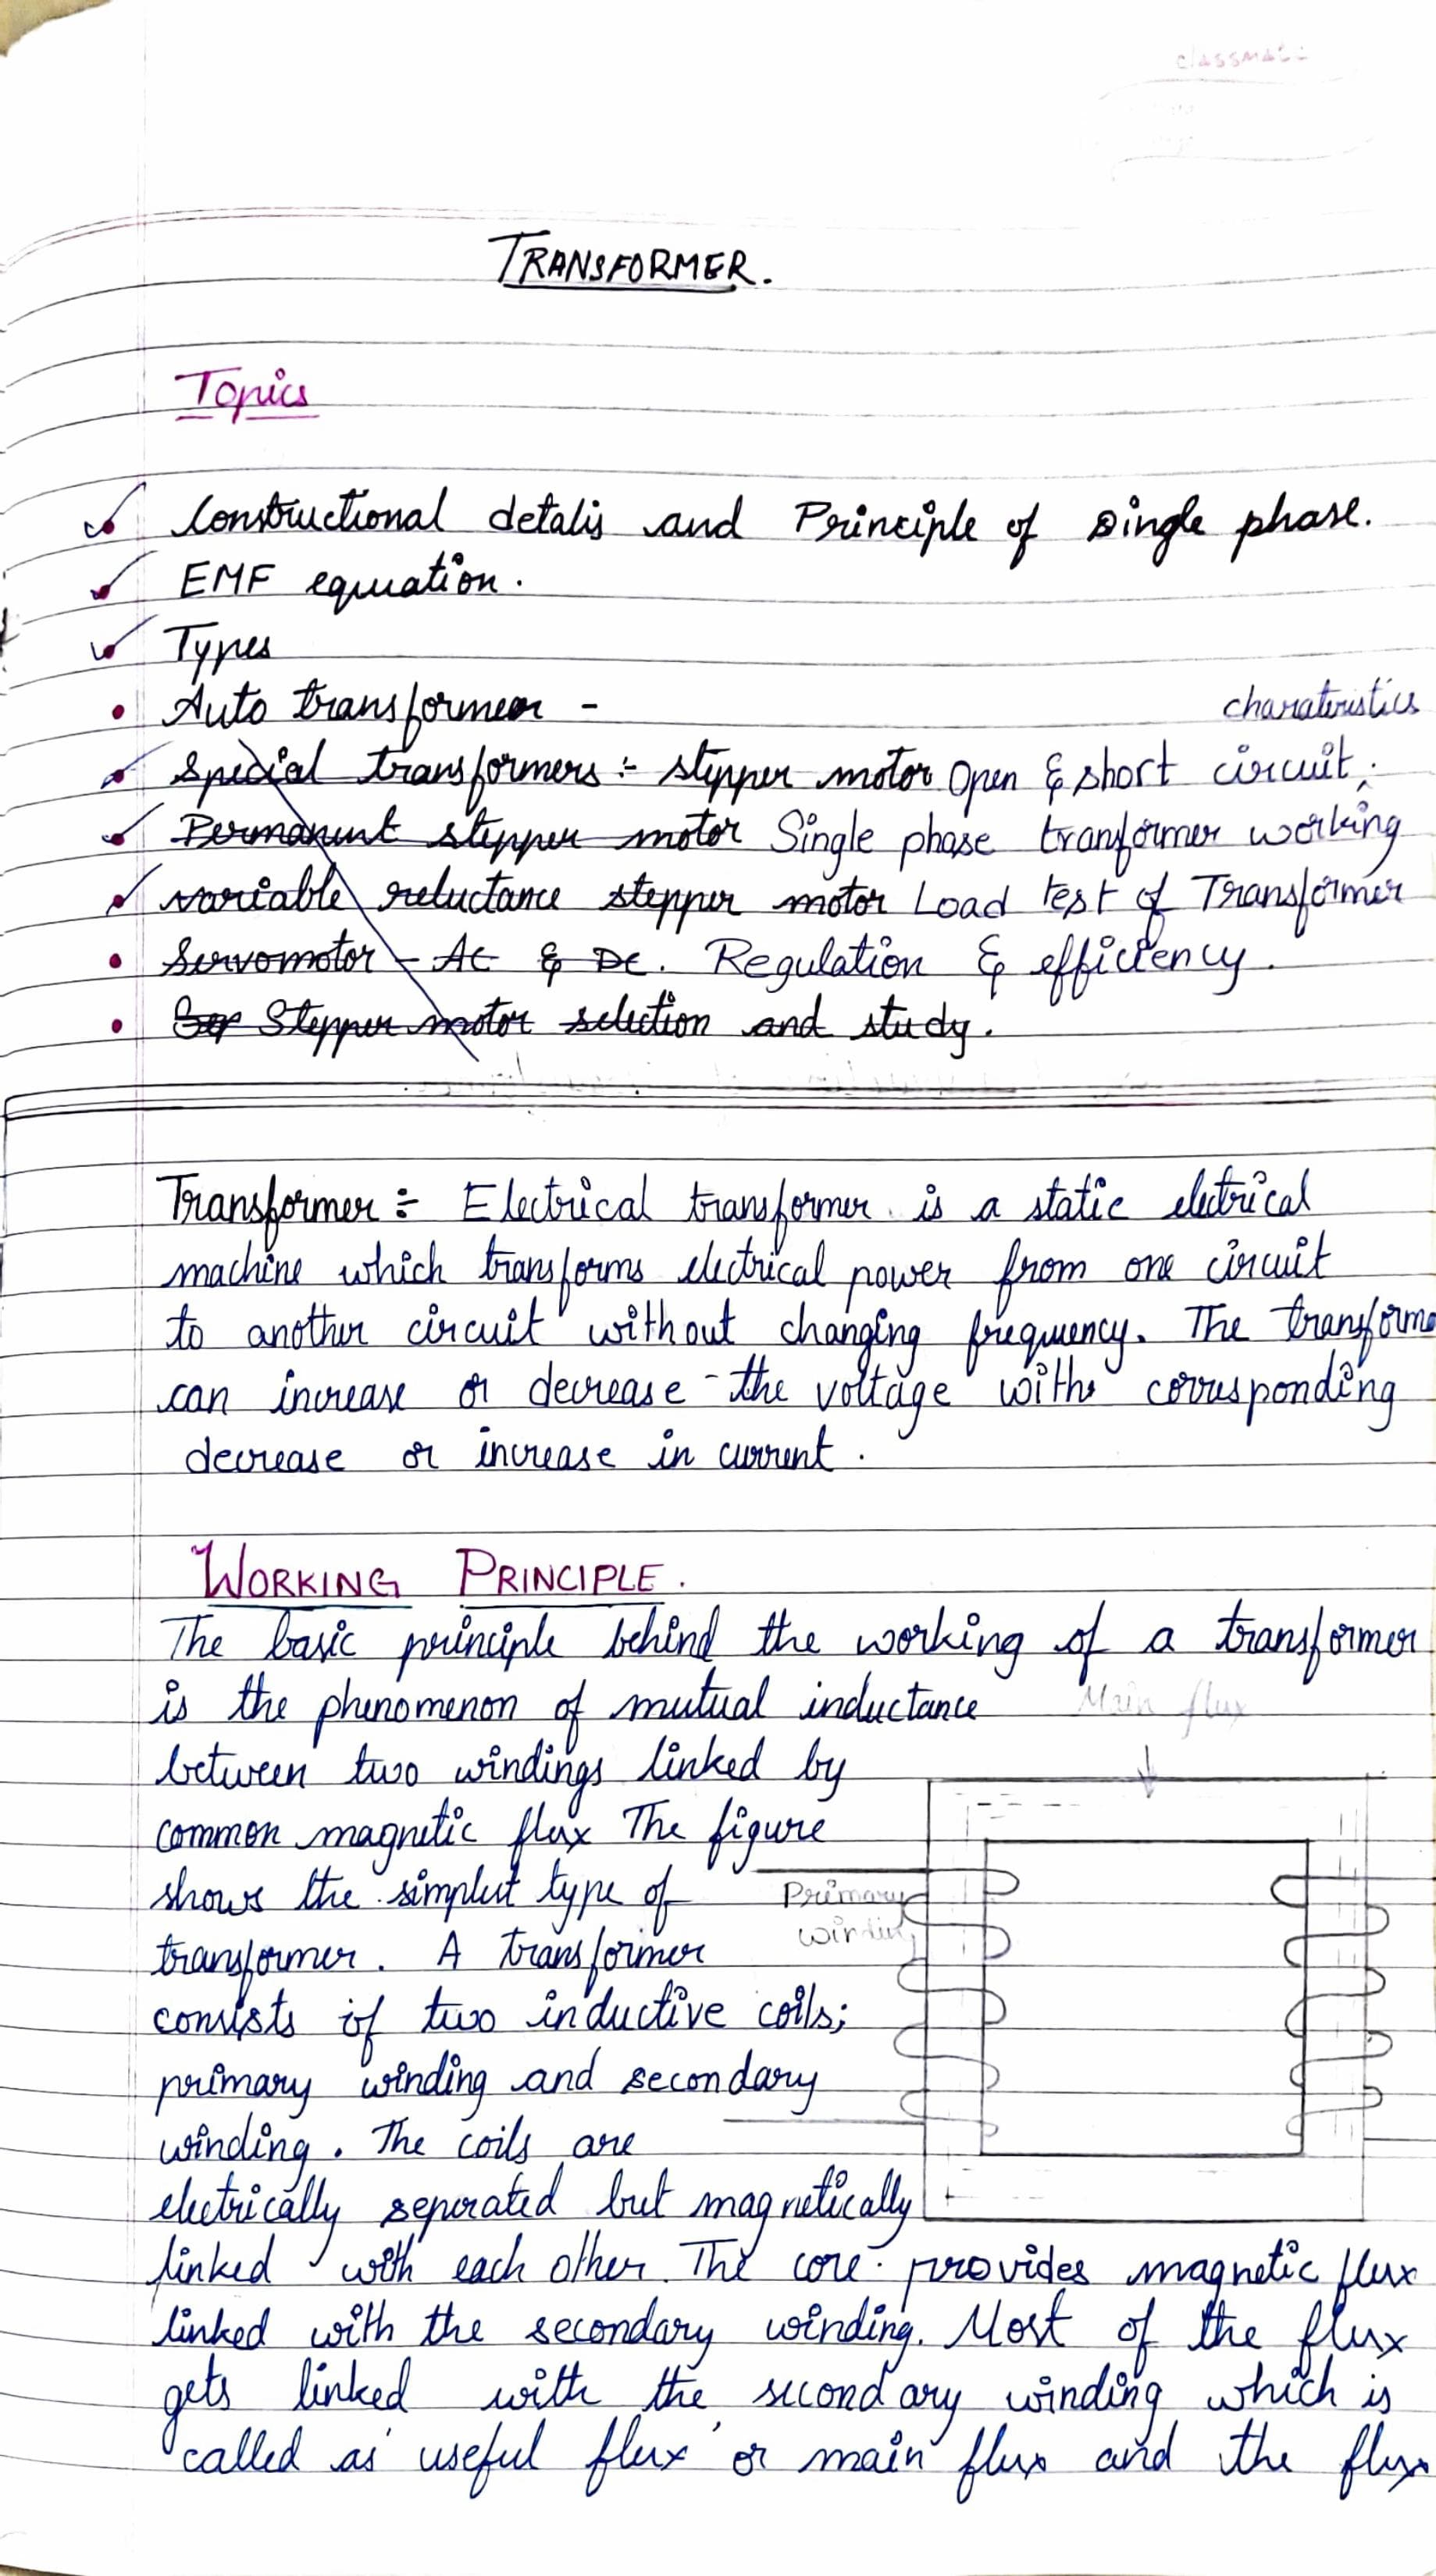 classmate
TRANSFORMER.
Topics
Constructional detalis and Principle of single phase.
EMF equation.
Types
Auto transformer -
charateristics
Special transformers :- stepper motor Open & short circuit,
Permanent stepper motor Single phase tranformer working
variable reluctance stepper motor Load test of Transformer
Servomotor - AC & DC. Regulation & efficiency.
Stepper motor selection and study.
Transformer :- Electrical transformer is a static electrical
machine which transforms electrical power from one circuit
to another circuit without changing frequency. The transforme
can increase or decrease the voltage with corresponding
decrease or increase in current.
WORKING PRINCIPLE.
The basic principle behind the working of a transformer
is the phenomenon of mutual inductance
Main flux
between two windings linked by
common magnetic flux The figure
shows the simplest type of
Primary
winding
transformer. A transformer
consists of two inductive coils;
primary winding and secondary
winding. The coils are
electrically seperated but magnetically
linked with each other. The core provides magnetic flux
linked with the secondary winding. Most of the flux
gets linked with the secondary winding which is
called as useful flux or main flux and the flux